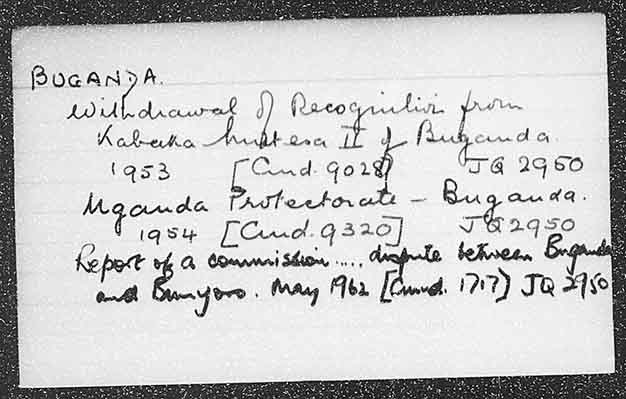 BUGANDA.
Withdrawal of Recognition from
Kabaka Mutesa II of Buganda.
1953 [Cmd. 9028] JQ 2950
Uganda Protectorate – Buganda.
1954 [Cmd. 9320] JQ 2950
Report of a commission ..... dispute between Buganda
and Bunyoro. May 1962 [Cmnd. 1717] JQ 2950